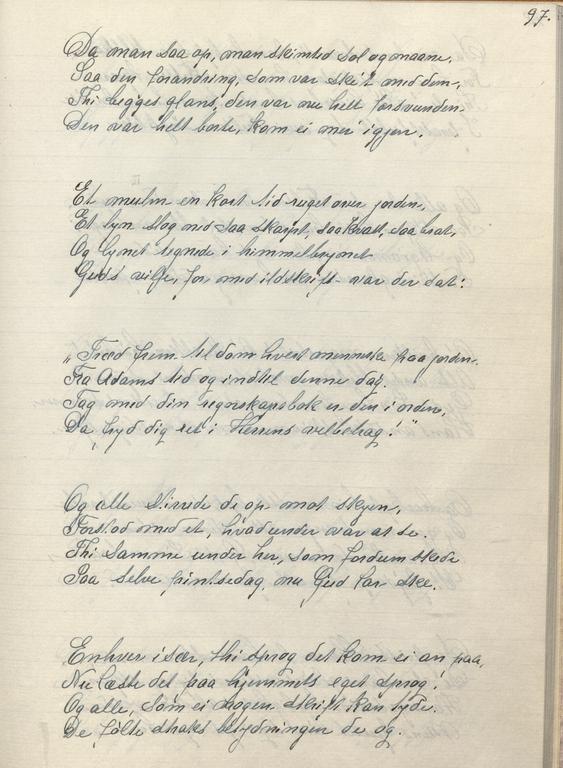 97.
Da man saa op, man skimted sol og maane,
Saa den forandring, som var skét med dem,
Thi begges glans, den var nu helt forsvunden.
Den var helt borte, kom ei mer igjen.
Et mulm en kort tid ruget over jorden.
Et lyn slog ned saa skarpt, saa kvast, saa brat,
Og lynet tegnede i himmelbrynet
Guds vilje, for med ildskrift var der sat:
„Træd frem til dom hvert menneske paa jorden.
Fra Adams tid og indtil denne dag.
Tag med din regnskapsbok er den i orden,
Da fryd dig ret i Herrens velbehag!"
Og alle stirrede de op mot skyen,
Forstod med et, hvad under var at se.
Thi samme under her, som fordum skede
Paa selve pintsedag, nu Gud lar ske.
Enhver især, thi sprog det kom ei an paa,
Nu læste det paa hjemmets eget sprog!
Og alle, som ei nogen skrift kan tyde
De følte straks betydningen de og.